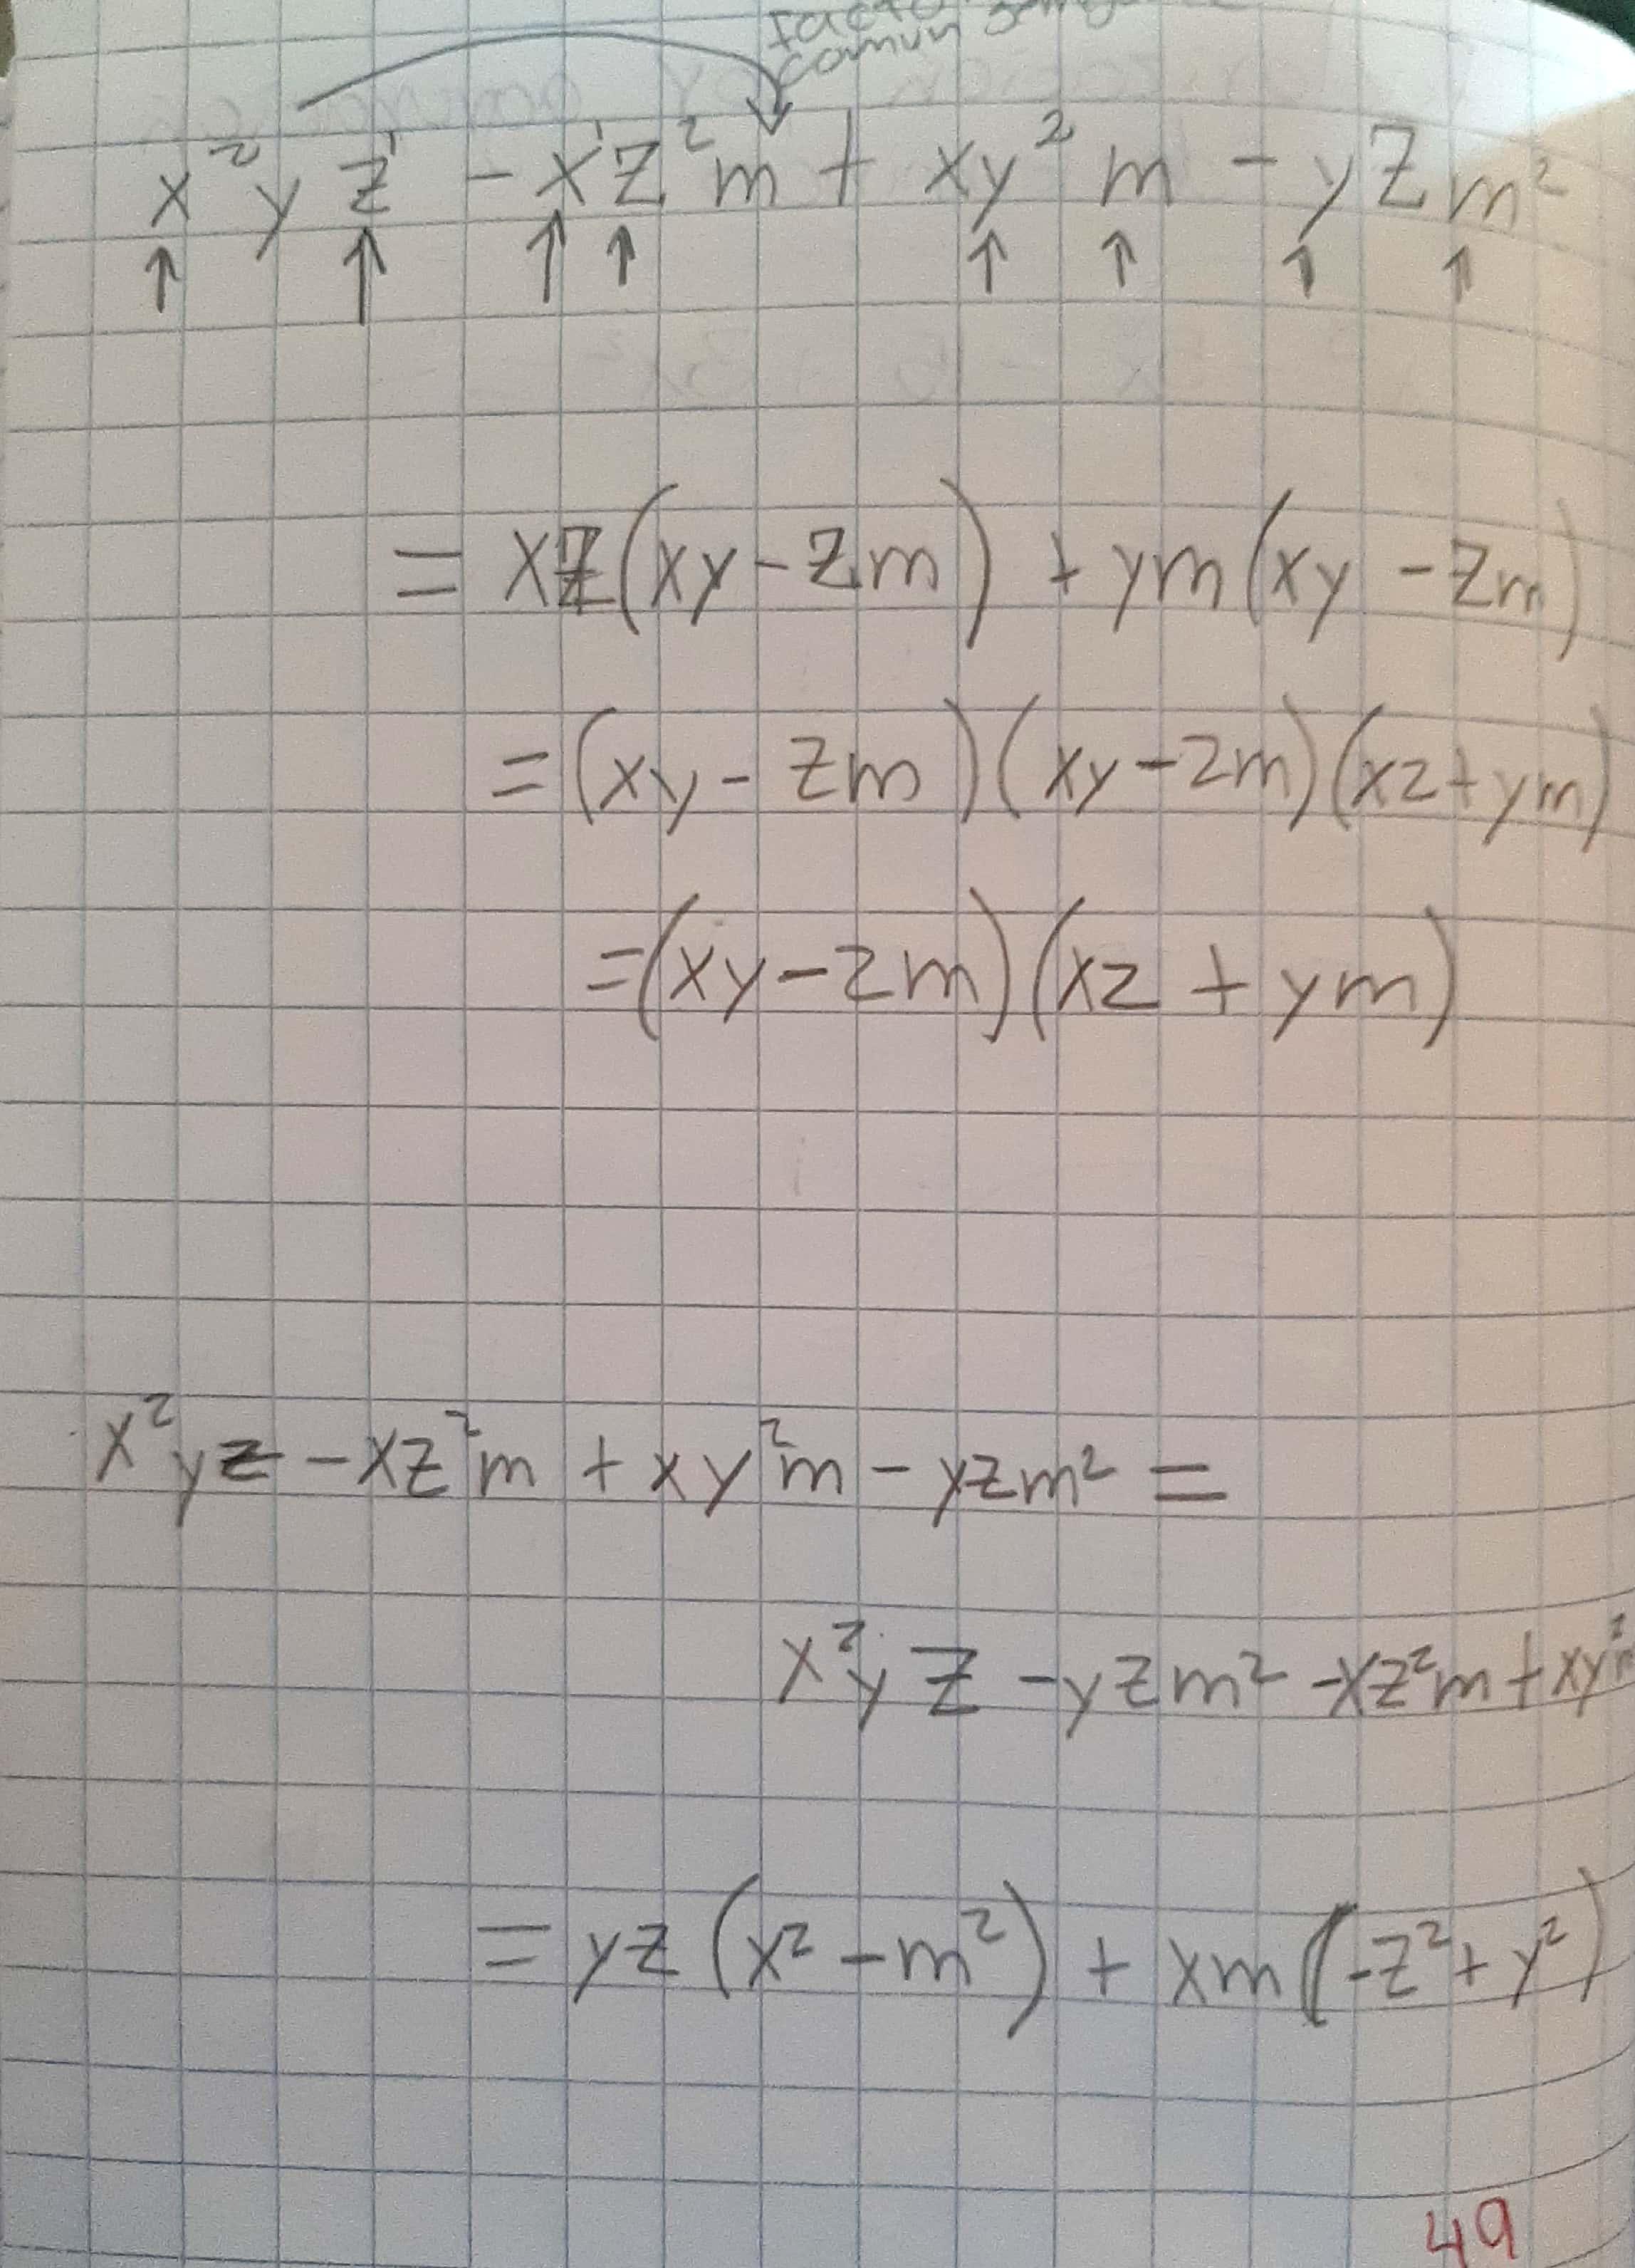 comun
x²yz¹ - x¹z²m + xy²m - yzm²
= xz(xy - zm) + ym(xy - zm)
= (xy - zm)(xy - zm)(xz + ym)
= (xy - zm)(xz + ym)
x²yz - xz²m + xy²m - yzm² =
x²yz - yzm² - xz²m + xy²m
= yz(x² - m²) + xm(-z² + y²)
49